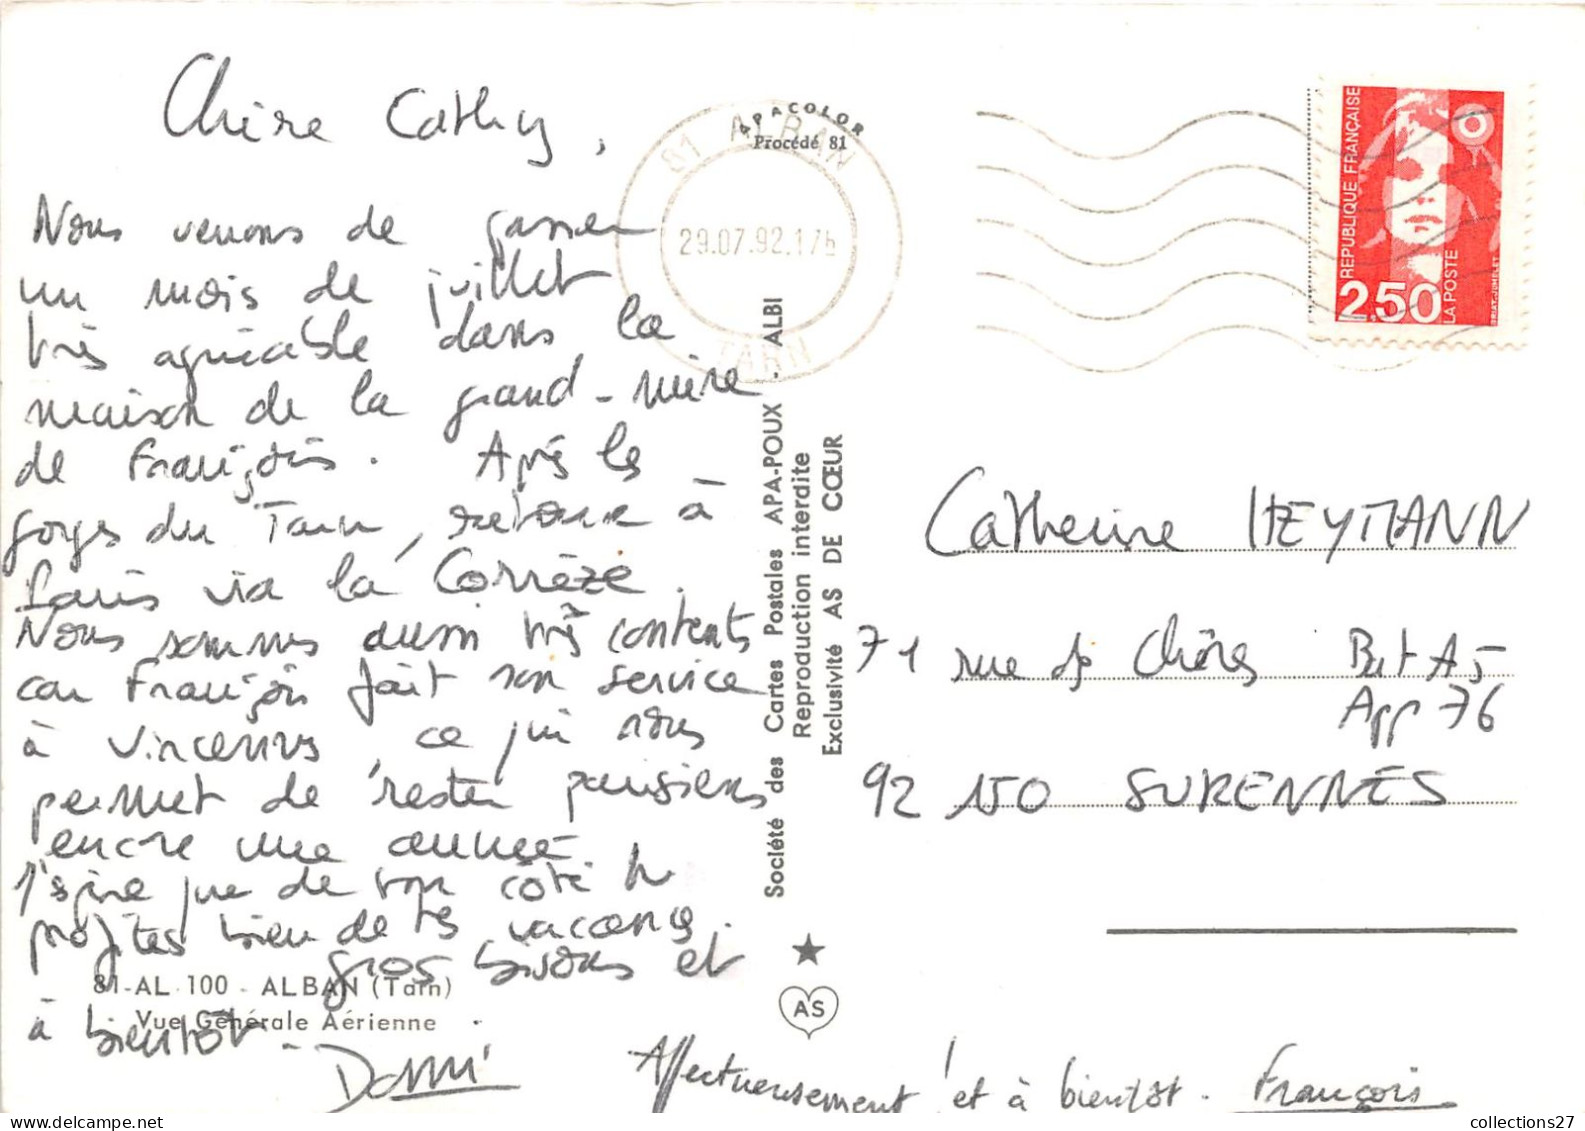 Chère Cathy,
Nous venons de passer
un mois de juillet
très agréable dans la
maison de la grand-mère
de François. Après les
joyes du Tarn, retour à
Paris via la Corrèze.
Nous sommes aussi très contents
car François fait son service
à Vincennes, ce qui nous
permet de rester parisiens
encore une année
J'espère que de ton côté tu
profites bien de tes vacances.
gros bisous et
à bientôt.
Domi
Affectueusement et à bientôt. François
81-AL 100 - ALBAN (Tarn)
Vue Générale Aérienne
APACOLOR
Procédé 81
81 ALBAN
29.07.92.17h
TARN
Société des Cartes Postales APA-POUX - ALBI
Reproduction interdite
Exclusivité AS DE CŒUR
AS
RÉPUBLIQUE FRANÇAISE
2.50
LA POSTE
BRIAT-JUMELET
Catherine HEYMANN
71 rue de Chênes Bat A5
App 76
92 150 SURENNES
collections27